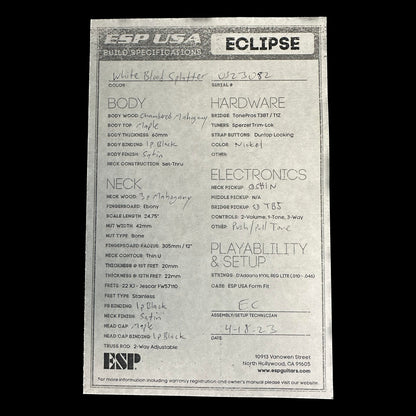 ESP USA
BUILD SPECIFICATIONS
ECLIPSE
White Blood Splatter
COLOR
US23082
SERIAL #
BODY
BODY WOOD: Chambered Mahogany
BODY TOP: Maple
BODY THICKNESS: 60mm
BODY BINDING: 1p Black
BODY FINISH: Satin
NECK CONSTRUCTION: Set-Thru
NECK
NECK WOOD: 3p Mahogany
FINGERBOARD: Ebony
SCALE LENGTH: 24.75"
NUT WIDTH: 42mm
NUT TYPE: Bone
FINGERBOARD RADIUS: 305mm / 12"
NECK CONTOUR: Thin U
THICKNESS @ 1ST FRET: 20mm
THICKNESS @ 12TH FRET: 22mm
FRETS: 22 XJ - Jescar FW57110
FRET TYPE: Stainless
FB BINDING: 1p Black
NECK FINISH: Satin
HEAD CAP: Maple
HEAD CAP BINDING: 1p Black
TRUSS ROD: 2-Way Adjustable
ESP
HARDWARE
BRIDGE: TonePros T3BT / T1Z
TUNERS: Sperzel Trim-Lok
STRAP BUTTONS: Dunlop Locking
COLOR: Nickel
OTHER:
ELECTRONICS
NECK PICKUP:
MIDDLE PICKUP: N/A
BRIDGE PICKUP:
CONTROLS: 2-Volume, 1-Tone, 3-Way
OTHER: Push/Pull Tone
PLAYABLILITY
& SETUP
STRINGS: D'Addario NYXL REG LITE (.010 - .046)
CASE: ESP USA Form Fit
E.C
ASSEMBLY/SETUP TECHNICIAN
4-18-23
DATE
10913 Vanowen Street
North Hollywood, CA 91605
www.espguitars.com
For more information including warranty registration and owner's manual please visit our website.